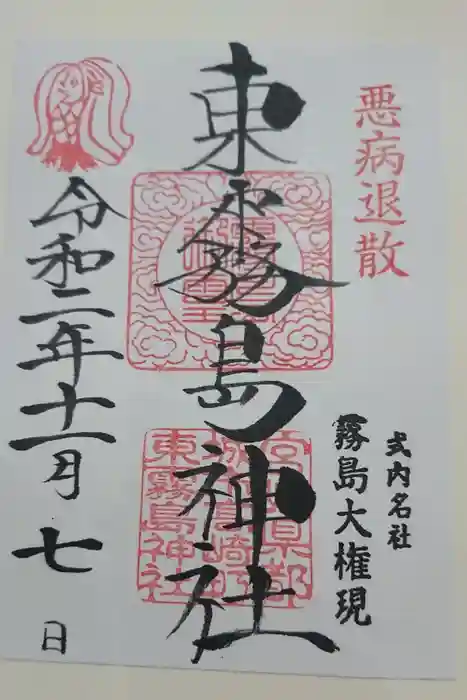 悪病退散
式内名社
霧島大権現
東霧島神社
東霧島神社
令和二年十一月七日